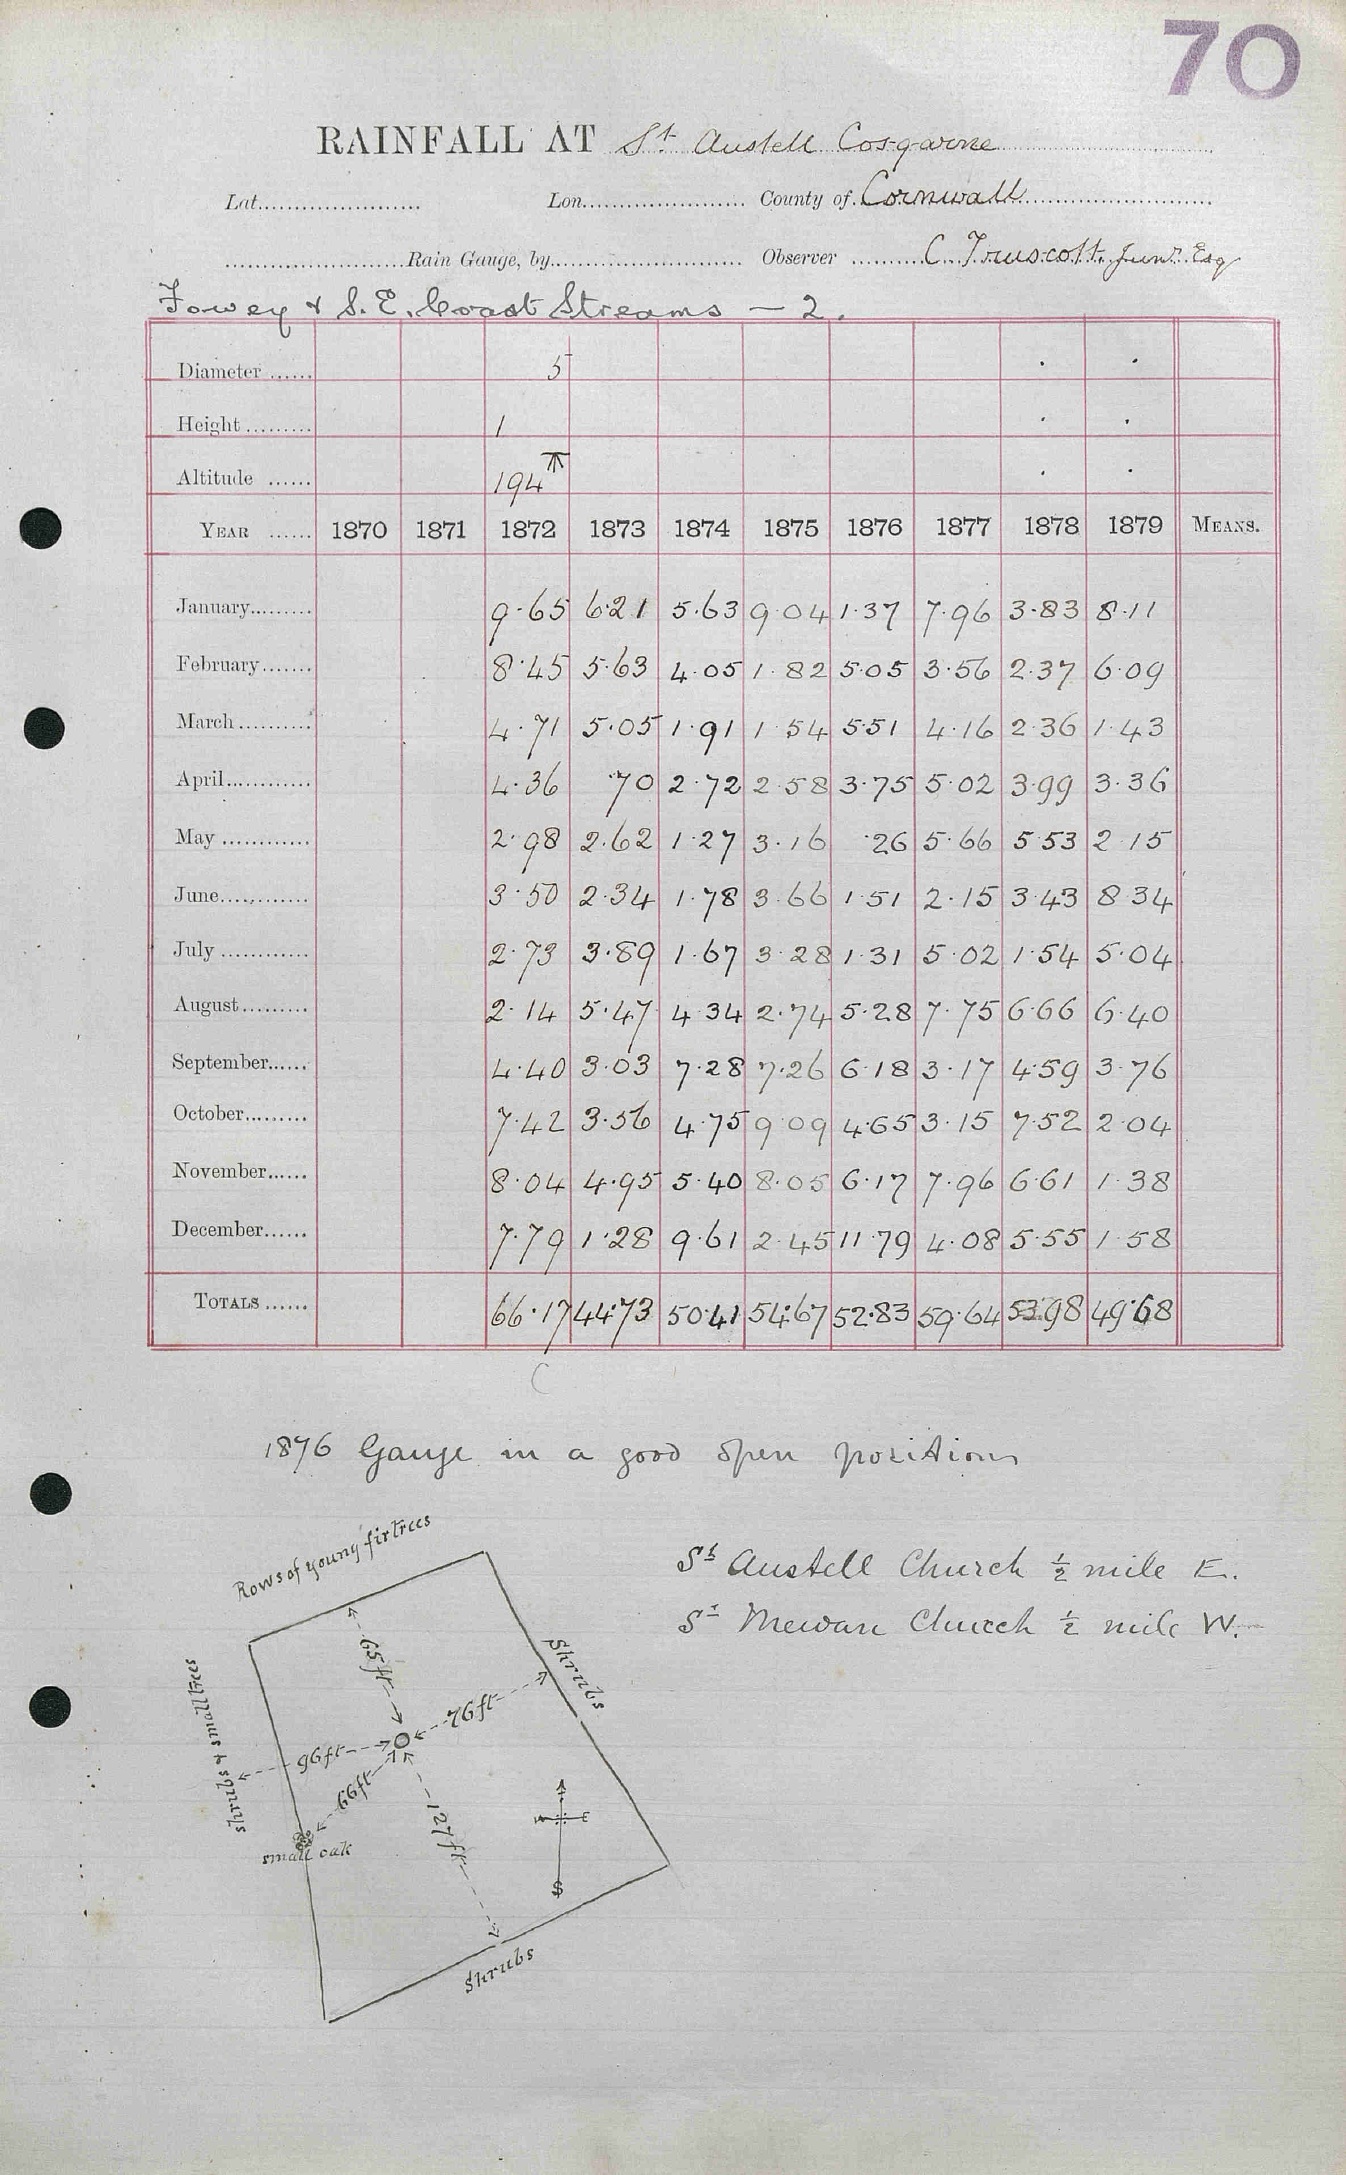 70
RAINFALL AT St Austell Cosgarne
Lat. Lon. County of Cornwall
Rain Gauge, by Observer C. Truscott Junr. Esq
Fowey & S.E. Coast Streams — 2.
Diameter 5
Height 1
Altitude 194
YEAR 1870 1871 1872 1873 1874 1875 1876 1877 1878 1879 MEANS.
January 9.65 6.21 5.63 9.04 1.37 7.96 3.83 8.11
February 8.45 5.63 4.05 1.82 5.05 3.56 2.37 6.09
March 4.71 5.05 1.91 1.54 5.51 4.16 2.36 1.43
April 4.36 .70 2.72 2.58 3.75 5.02 3.99 3.36
May 2.98 2.62 1.27 3.16 .26 5.66 5.53 2.15
June 3.50 2.34 1.78 3.66 1.51 2.15 3.43 8.34
July 2.73 3.89 1.67 3.28 1.31 5.02 1.54 5.04
August 2.14 5.47 4.34 2.74 5.28 7.75 6.66 6.40
September 4.40 3.03 7.28 7.26 6.18 3.17 4.59 3.76
October 7.42 3.56 4.75 9.09 4.65 3.15 7.52 2.04
November 8.04 4.95 5.40 8.05 6.17 7.96 6.61 1.38
December 7.79 1.28 9.61 2.45 11.79 4.08 5.55 1.58
TOTALS 66.17 44.73 50.41 54.67 52.83 59.64 53.98 49.68
1876 Gauge in a good open position
Rows of young firtrees
St Austell Church ½ mile E.
St Mewan Church ½ mile W.
65 ft
Shrubs
76 ft
shrubs & small trees
96 ft
66 ft
127 ft
W E
small oak
S
Shrubs